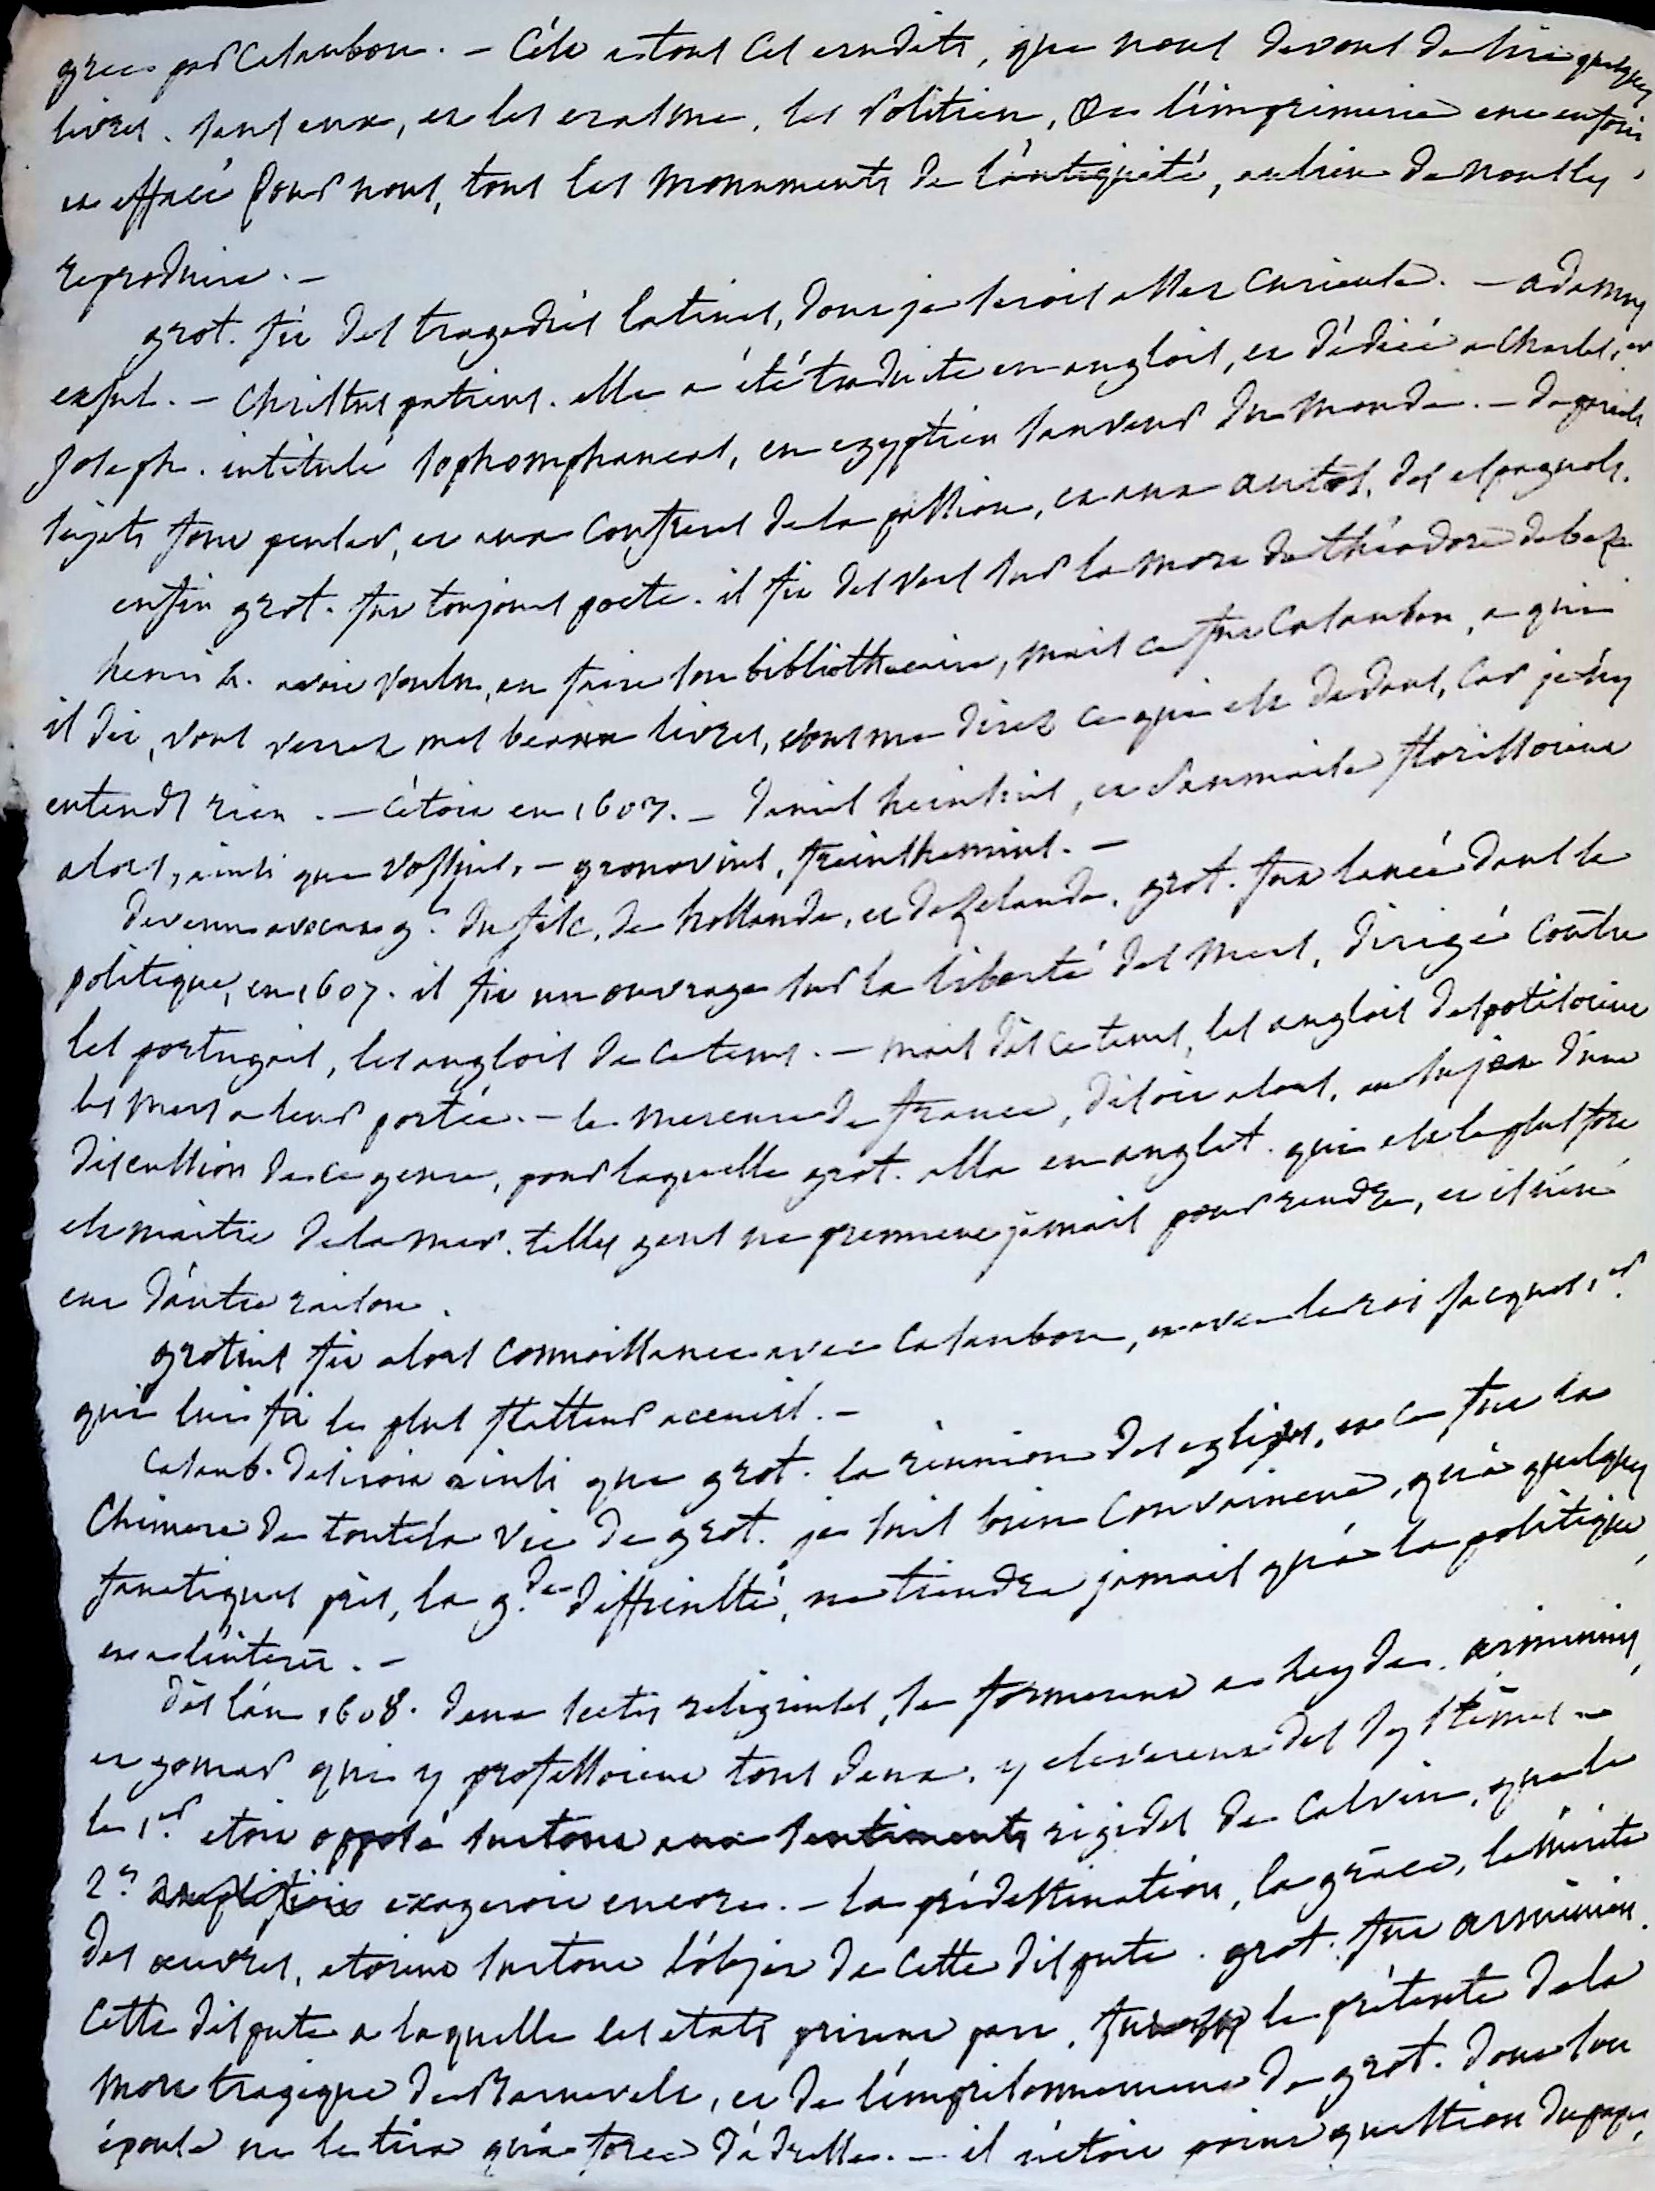 grec par Casaubon. – C'est a tous ces erudits, que nous devons de lire quelques
livres. sans eux, et les erasme, les Politien, et l'imprimerie eut enfoui
et effacé pour nous, tous les monuments de l'antiquité, au lieu de nous les
reproduire. –
grot. fit des tragedies latines, dont je serois assez curieuse. – adamus
exful. – Christus patiens. elle a été traduite en anglois, et dédiée a Charles 1er
Joseph. intitulé sophomphaneas, en egyptien sauveur du monde. – de pareils
sujets font penser, et aux confreres de la passion, et aux autos, des espagnols.
enfin grot. fut toujours poete. il fit des vers sur la mort de théodore de beze
henri 4. avoit voulu, en faire son bibliothecaire, mais ce fut Casaubon, a qui
il dit, vous verrez mes beaux livres, vous me direz ce qui est dedans, car je n'y
entends rien. – C'étoit en 1603. – Daniel heinsius, et Saumaise florissoient
alors, ainsi que Vossius, – gronovius, freinshemius. –
devenu avocat gl. du fisc, de hollande, et de Zelande, grot. fut lancé dans la
politique, en 1607. il fit un ouvrage sur la liberté des mers, dirigé contre
les portugais, les anglois de ce tems. – mais dès ce tems, les anglois despotisoient
les mers a leur portée. – le mercure de france, disoit alors, au sujet d'une
discussion de ce genre, pour laquelle grot. alla en anglet. qui est le plus fort
est maitre de la mer. telles gens ne prennent jamais pour rendre, et il n'en
eut d'autre raison.
grotius fit alors connoissance avec Casaubon, et avec le roi Jacques 1er.
qui lui fit le plus flatteur accueil. –
Casaub. desiroit ainsi que grot. la réunion des eglises, et ce fut la
Chimere de toute la vie de grot. je suis bien convaincue, qu'a quelques
fanatiques près, la gde difficulté, ne tiendra jamais qu'à la politique,
et a l'interêt. –
dès l'an 1608. deux sectes religieuses, se formerent a Leyde. arminius,
et gomar qui y professoient tous deux, y eleverent des systêmes –
le 1er. etoit opposé surtout aux sentiments rigides de Calvin, que le
2d. exageroit encore. – la prédestination, la grâce, le mérite
des œuvres, etoient surtout l'objet de cette dispute. grot. fut arminien.
Cette dispute a laquelle les etats prirent part, fut le prétexte de la
mort tragique de Barnevelt, et de l'emprisonnement de grot. dont son
épouse ne le tira qu'a force d'adresse. – il n'étoit point question du pape,